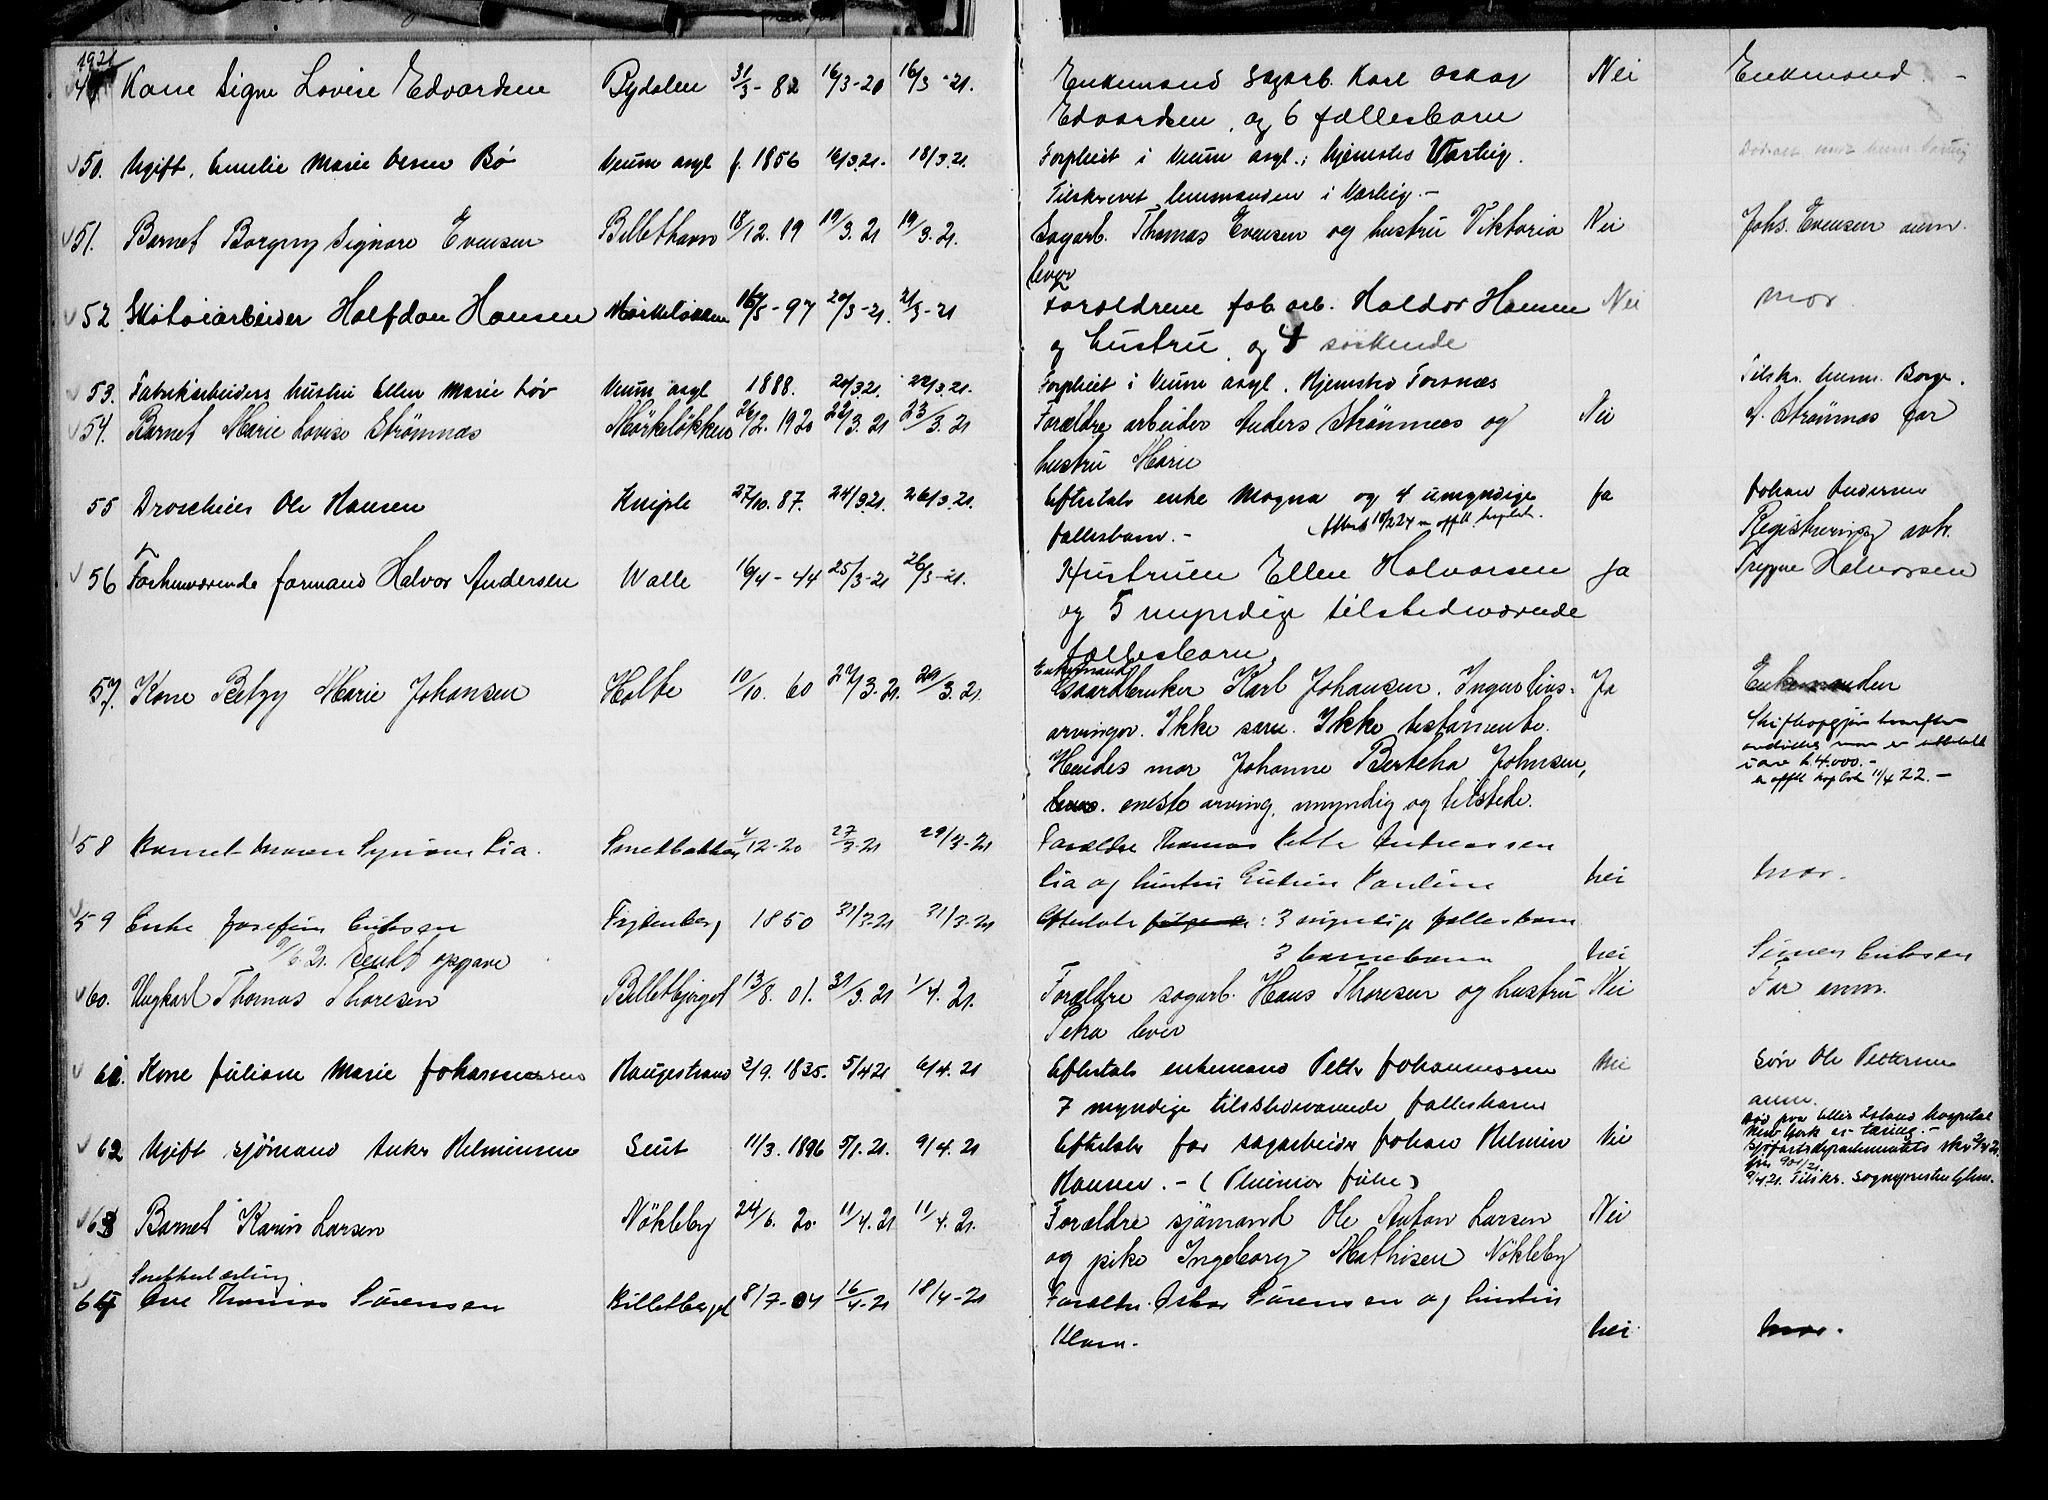 1921
Kone Signe Lovise Edvardsen Bydalen 31/3-82 16/3-21 16/3-21. Enkemand sagarb. Karl Oskar Nei Enkemand.
Edvardsen, og 6 fællesbarn
50. Ugift, Emilie Marie Olsen Bø Veum asyl f. 1856 16/3.21. 18/3.21. Forpleiet i Veum asyl.; hjemsted Varteig.
Tilskrevet lensmanden i Varteig.-
51. Barnet Borgny Signora Evensen Billethavn 18/12.19 19/3.21 19/3.21. Sagarb. Thomas Evensen og hustru Viktoria Nei Johs. Evensen anm.
lever
52 Skotøiarbeider Halfdan Hansen Mørkeløkken 16/5-97 20/3-21. 21/3-21 Foreldrene fab. arb. Haldor Hansen Nei mor.
og hustru, og 4 søskende
53. Fabrikarbeiders hustru Ellen Marie Løv Veum asyl 1888. 20/3.21. 22/3.21. Forpleiet i Veum asyl. Hjemsted Torsnæs Tilskr. lensm. Borge.
54. Barnet Marie Lovise Strømnæs Mørkeløkken 26/2.1920 22/3.21 23/3.21 Forældre arbeider Anders Strømnæs og Nei A. Strømnæs far
hustru Marie
55 Droscheeier Ole Hansen Kniple 27/10.87. 24/3.21. 26/3.21. Efterlatt enke Magna og 4 umyndige Ja Johan Andersen
fællesbarn.- Registrering avh.
56 Forhenværende formand Halvor Andersen Walle 16/4-44 25/3-21 26/3-21. Hustruen Ellen Halvorsen Ja Trygve Halvorsen
og 5 myndige tilstedeværende
fællesbarn
57. Kone Betzy Marie Johansen Holte 10/10.60 27/3.21. 29/3.21 Enkemand Gaardbruker Karl Johansen. Ingen livs- Ja Enkemanden
arvinger. Ikke særei. Ikke testamente.
Hendes mor Johanne Bertcha Johnsen,
eneste arving, myndig og tilstede.
58 Barnet Maren Synøve Lia. Smedbakken 4/12-20 27/3-21 29/3-21 Forældre Thomas Andreassen
Lia og hustru Pauline nei mor.
59 Enke Josefine Eriksen Frydenberg 1850 31/3-21 31/3-21 Efterlatt : 3 myndige fællesbarn
9/6 21. sendt opgave 3 barnebarn nei Simen Eriksen
60. Ungkarl Thomas Thoresen Billetbjerget 13/8.01. 31/3.21 1/4.21. Forældre sagarb. Hans Thoresen og hustru Nei Far anm.
Petra lever
61. Kone Juliane Marie Johannessen Haugestrand 3/9.1835. 5/4 21 6/4.21 Efterlatt enkemand Petter Johannessen Nei Søn Ole Pettersen
7 myndige tilstedeværende fællesbarn anm.
62 Ugift sjømand Anker Helminsen Seut 11/3.1896 5/1.21. 9/4.21 Efterlater far sagarbeider Johan Helmin Nei Død paa Ellis Island hospital
New York av tæring.-
Hansen.-
63 Barnet Karin Larsen Nøkleby 24/6.20. 11/4.21 11/4.21. Forældre sjømand Ole Anton Larsen Nei
og pike Ingeborg Mathisen Nøkleby
64 Ove Thomas Sørensen Billetberget 8/7-04 16/4-21 18/4-21 Forældr. Oskar Sørensen og hustru
Klara. nei mor.